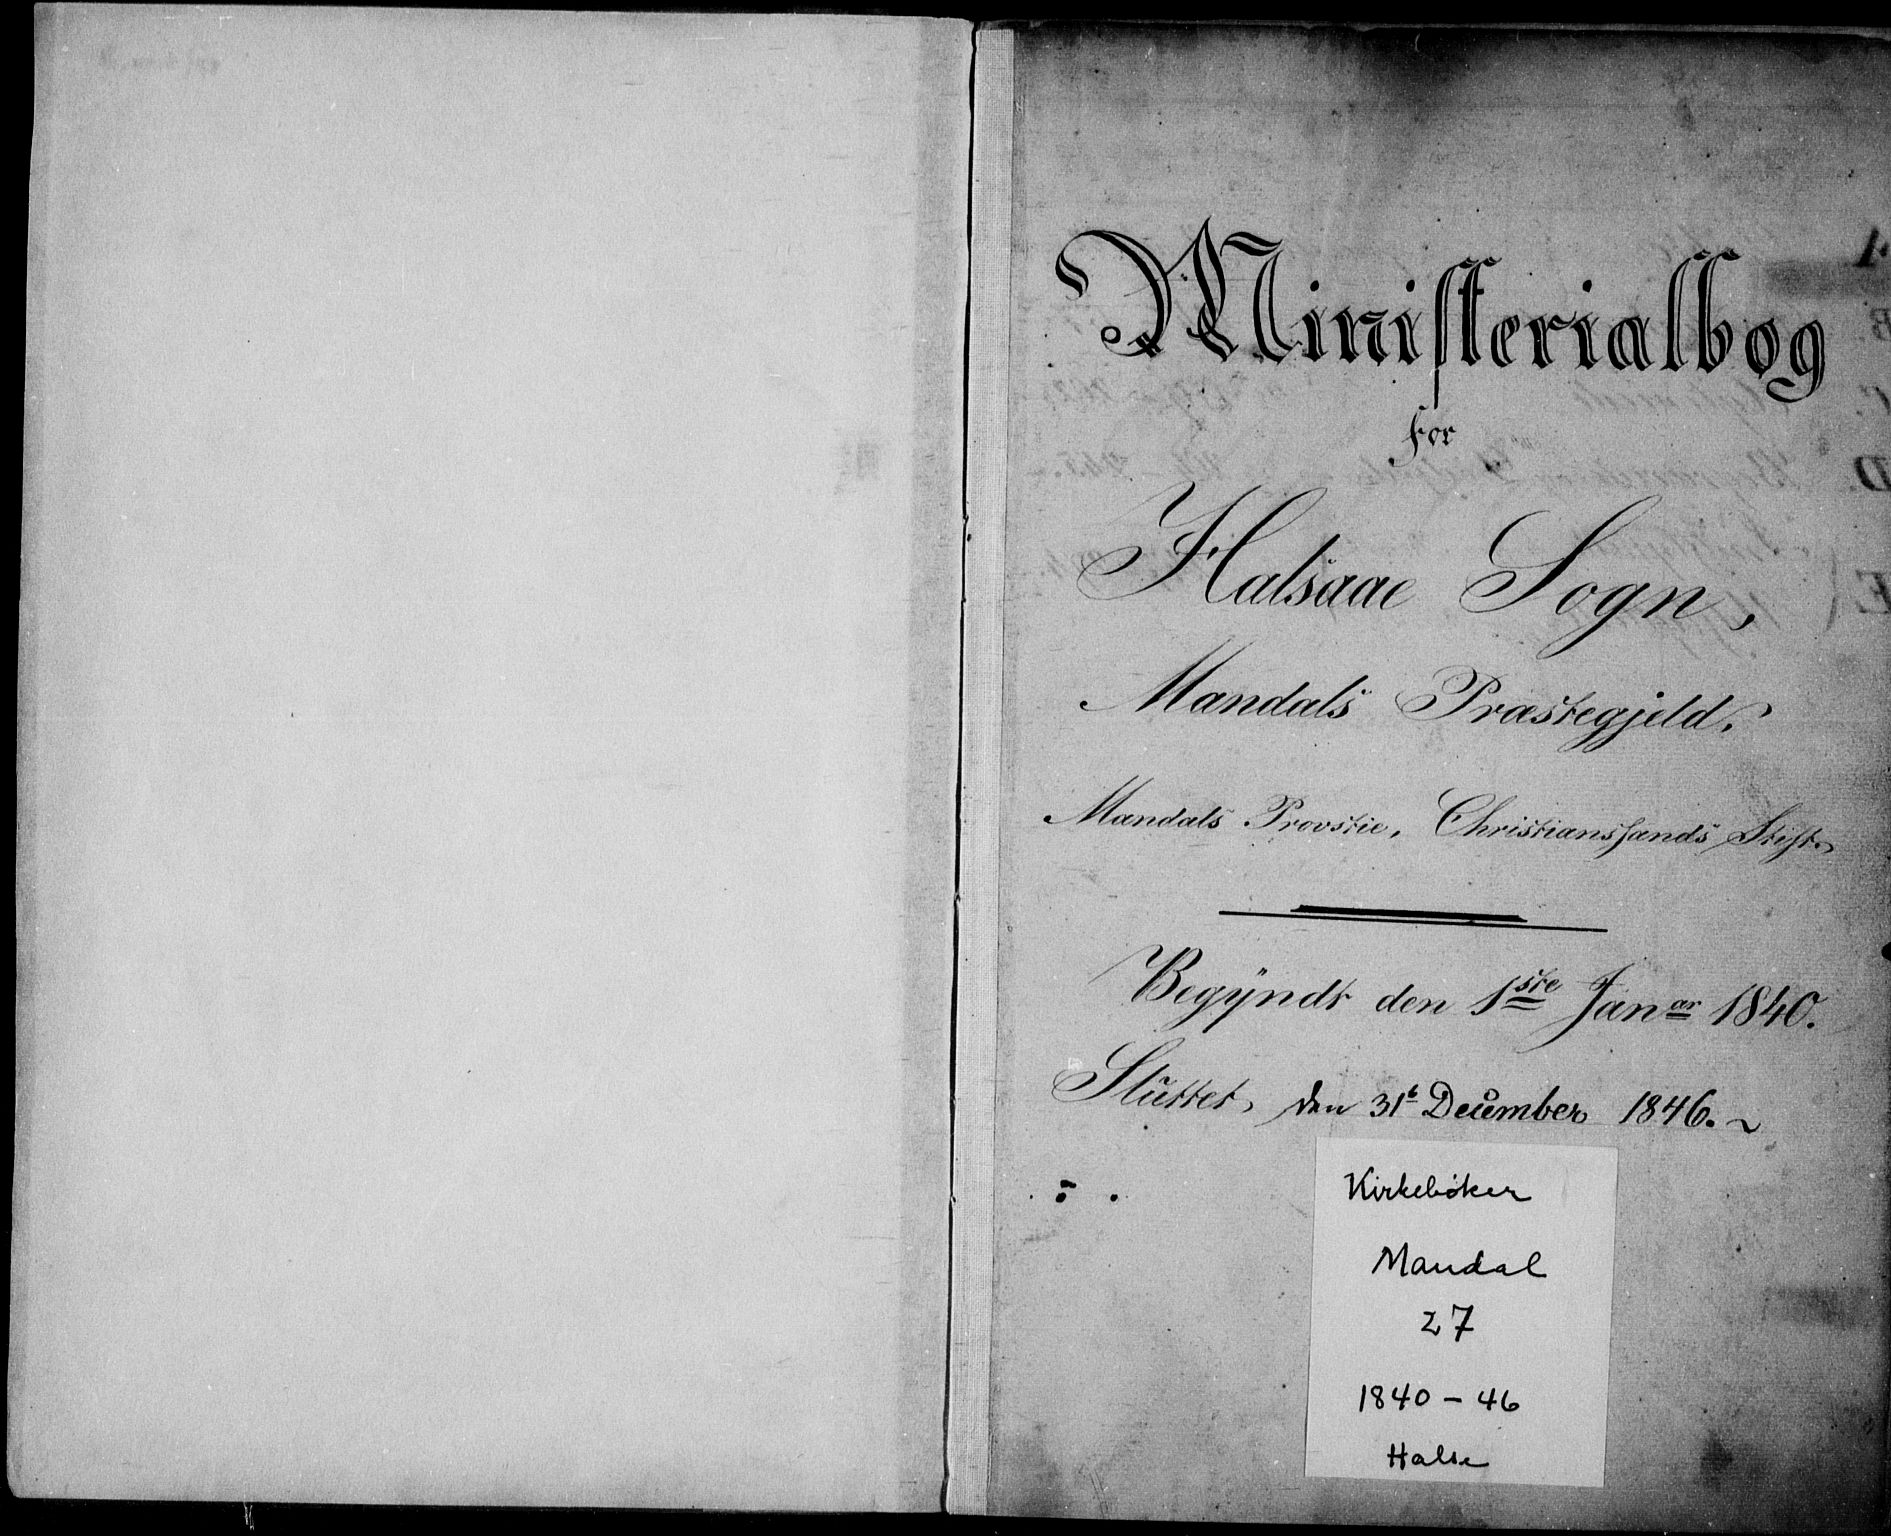 Ministerialbog
for
Halsaae Sogn,
Mandals Præstegjeld,
Mandals Provstie, Christianssands Stift.
Begyndt den 1ste Janar 1840.
Sluttet, den 31t December 1846.
Kirkebøker
Mandal
27
1840 - 46
Halse
A
B.
C.
D.
E